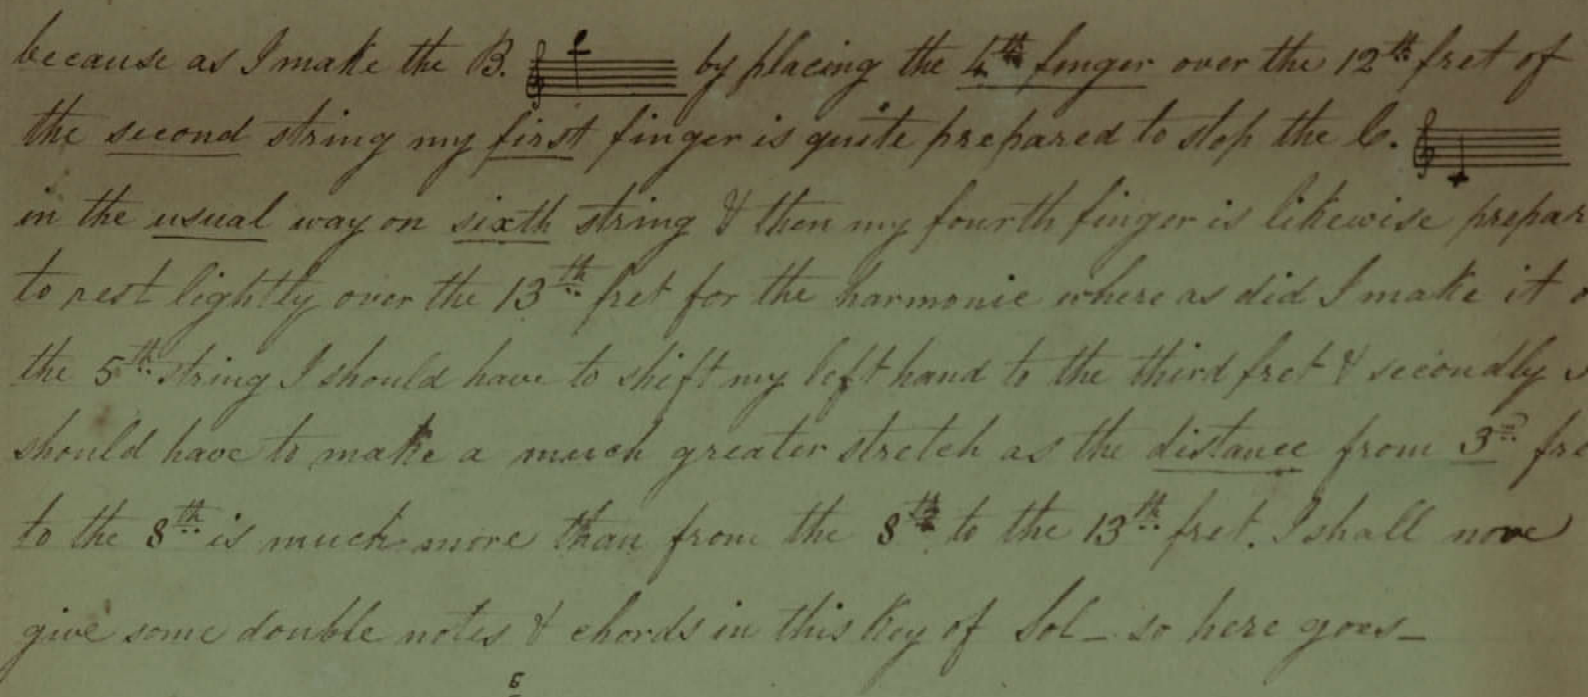 because as I make the B. by placing the 4th finger over the 12th fret of
the second string my first finger is quite prepared to stop the C.
in the usual way on sixth string & then my fourth finger is likewise prepar
to rest lightly over the 13th fret for the harmonic where as did I make it o
the 5th string I should have to shift my left hand to the third fret & secondly
should have to make a much greater stretch as the distance from 3rd fre
to the 8th is much more than from the 8th to the 13th fret. I shall now
give some double notes & chords in this Key of Sol_ so here goes_
6